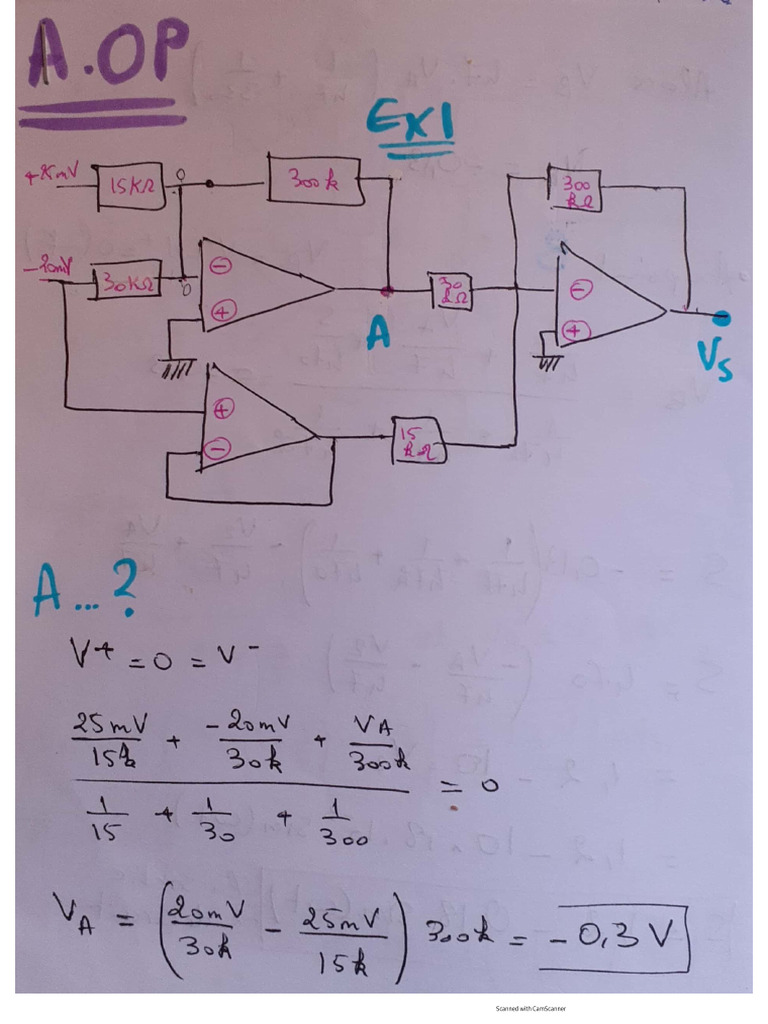 A.OP
EX1
+25mV
15KΩ
0
300k
300
kΩ
-20mV
30KΩ
0
-
+
A
30
kΩ
-
+
Vs
+
-
15
kΩ
A...?
V+ = 0 = V-
25mV/15k + -20mV/30k + VA/300k
= 0
1/15 + 1/30 + 1/300
VA = (20mV/30k - 25mV/15k) 300k = -0,3V
Scanned with CamScanner